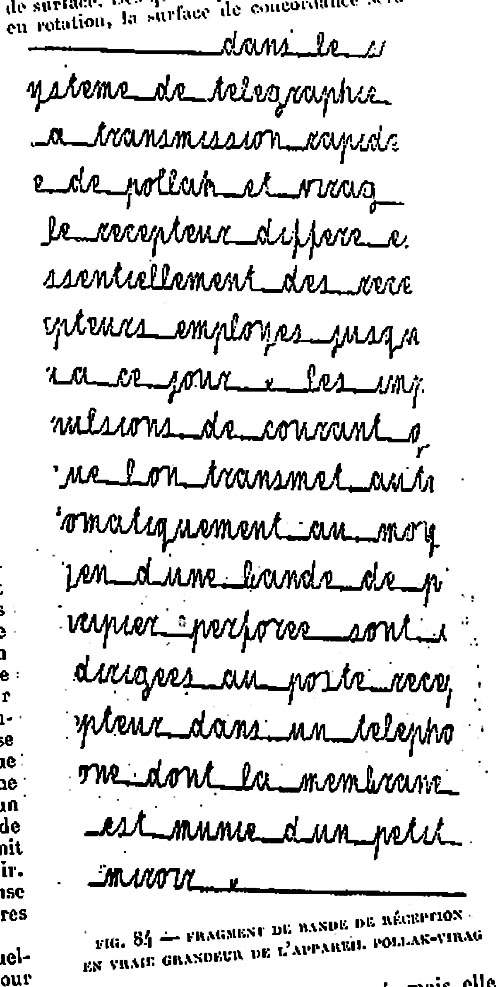 de surface.
en rotation, la surface de concordance sera
dans le s
ysteme de telegraphie
a transmission rapide
e de pollak et virag
le recepteur differe e
ssentiellement des rece
epteurs employes jusqu
u a ce jour x les imp
pulsions de courant q
que l on transmet aut
tomatiquement au moy
yen d une bande de p
papier perforee sont
dirigees au poste recep
epteur dans un telepho
one dont la membrane
est munie d un petit
miroir x
FIG. 84 — FRAGMENT DE BANDE DE RÉCEPTION
EN VRAIE GRANDEUR DE L'APPAREIL POLLAK-VIRAG
mais elle